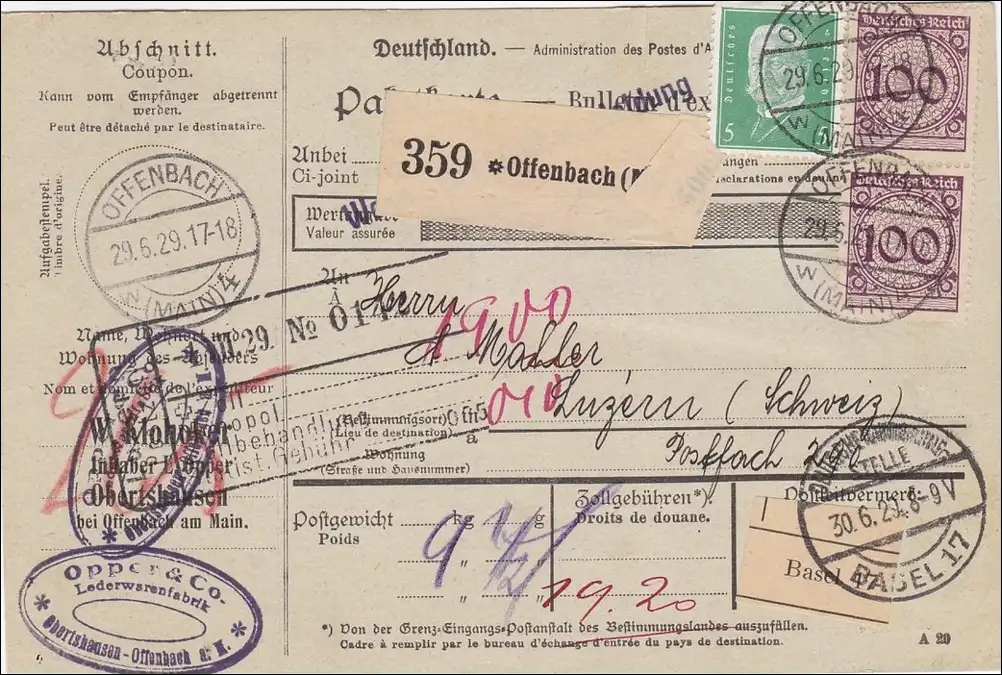 Abschnitt.
Coupon.
Kann vom Empfänger abgetrennt
werden.
Peut être détaché par le destinataire.
Aufgabestempel.
Timbre d'origine.
OFFENBACH
29.6.29.17-18
W (MAIN) 4
Name, Wohnort und
Wohnung des Absenders
Nom et domicile de l'expéditeur
W. Klohoker
Inhaber L. Opper
Obertshausen
bei Offenbach am Main.
Opper & Co.
Lederwarenfabrik
* Obertshausen - Offenbach a. M. *
Deutschland. — Administration des Postes d'A
Bulletin d'ex
Anbei
Ci-joint
359 *Offenbach (
Déclarations en douane
Wertangabe
Valeur assurée
Deutsches
5 5
Deutsches Reich
100
Deutsches Reich
100
OFFENBACH
29.6.29.17-18
W (MAIN)
OFFENBACH
29.6.29
W (MAIN)
An
À
Herrn
1900
29 № 01
A. Maller
Luzern (Schweiz)
(Bestimmungsort)
(Lieu de destination)
à
Postfach
Wohnung
(Straße und Hausnummer)
Postgewicht kg g
Poids
Zollgebühren*).
Droits de douane.
Postleitvermerk
9
19.20
STELLE
30.6.29.8-9V
BASEL 17
Basel 17
*) Von der Grenz-Eingangs-Postanstalt des Bestimmungslandes auszufüllen.
Cadre à remplir par le bureau d'échange d'entrée du pays de destination.
A 29